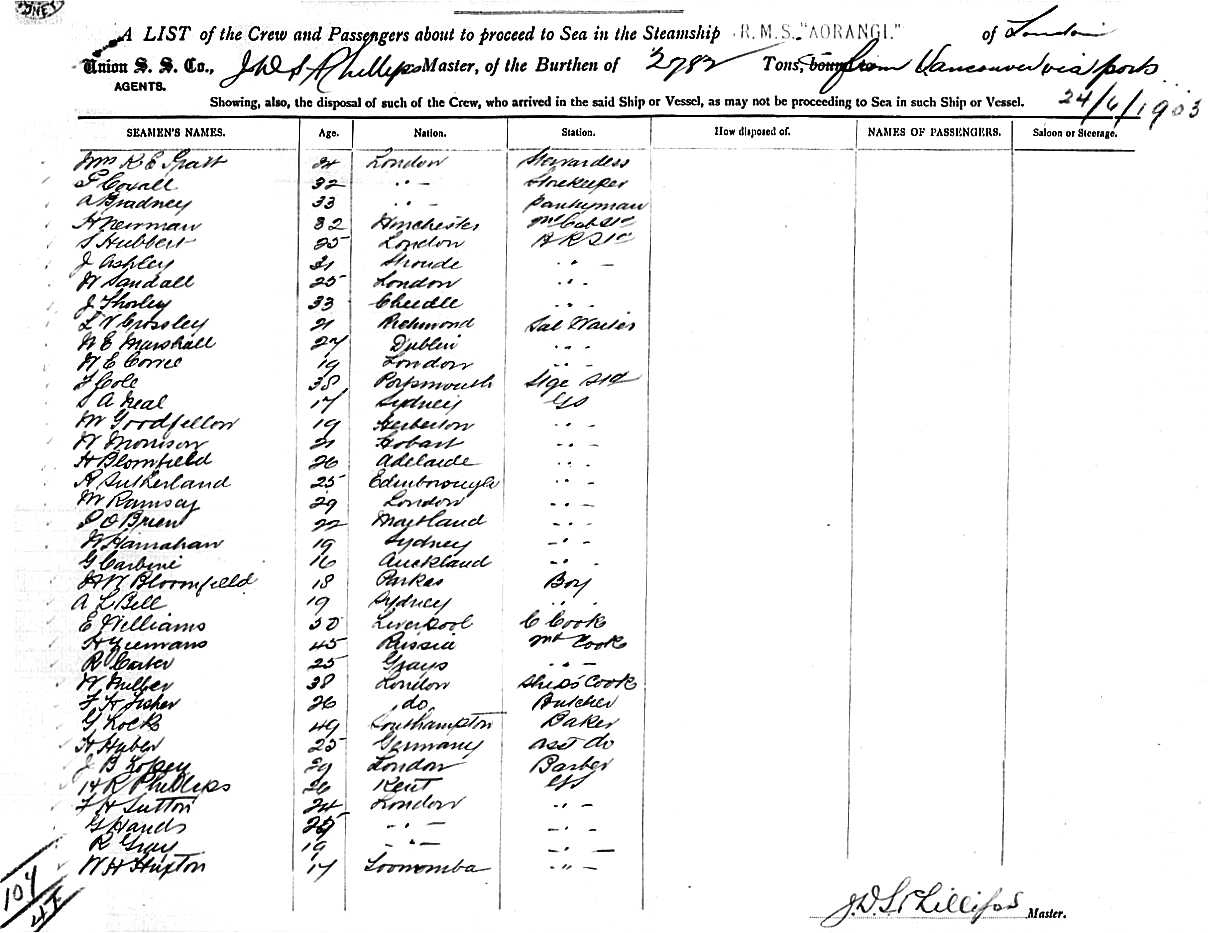 A LIST of the Crew and Passengers about to proceed to Sea in the Steamship R.M.S. "AORANGI." of London
Union S. S. Co., J D S Phillips Master, of the Burthen of 2782 Tons, bound from Vancouver via ports
AGENTS.
Showing, also, the disposal of such of the Crew, who arrived in the said Ship or Vessel, as may not be proceeding to Sea in such Ship or Vessel. 24/6/1903
SEAMEN'S NAMES. Age. Nation. Station. How disposed of. NAMES OF PASSENGERS. Saloon or Steerage.
K E Spratt 24 London Stewardess
32 " - Storekeeper
A Bradney 33 " - Pantryman
H Newman 32
S Hubbert 25 London
J Ashley 31 Stroude " -
W Sandall 25 London " -
J Thorley 33 Cheedle " -
L V Crossley 21 Richmond Sal Waiter
W E Marshall 27 Dublin " -
W E Corrie 19 London " -
F Cole 38 Portsmouth Stge Std
S A Neal 17 Sydney GS
W Goodfellow 19 Herberton " -
W Morrison 21 Hobart " -
H Blomfield 26 Adelaide " -
R Sutherland 25 Edinborough " -
W Ramsay 29 London " -
P O Brien 22 Maitland " -
W Hanrahan 19 Sydney " -
G Carbine 16 Auckland " -
H W Bloomfield 18 Parkes Boy
A L Bell 19 Sydney " -
E Williams 30 Liverpool C Cook
H 45 Russia Cook
R Carter 25 Grays " -
W 38 London Ships Cook
F H Fisher 26 do Butcher
G Lock 49 Southampton Baker
H Huber 25 Germany asst do
J B 29 London Barber
H R Phillips 26 Kent GS
F H Sutton 24 London " -
G Hands " - " -
R Gray 19 " - " -
W H Hupton 17 Toowomba " -
107
J.D.S. Phillips Master.